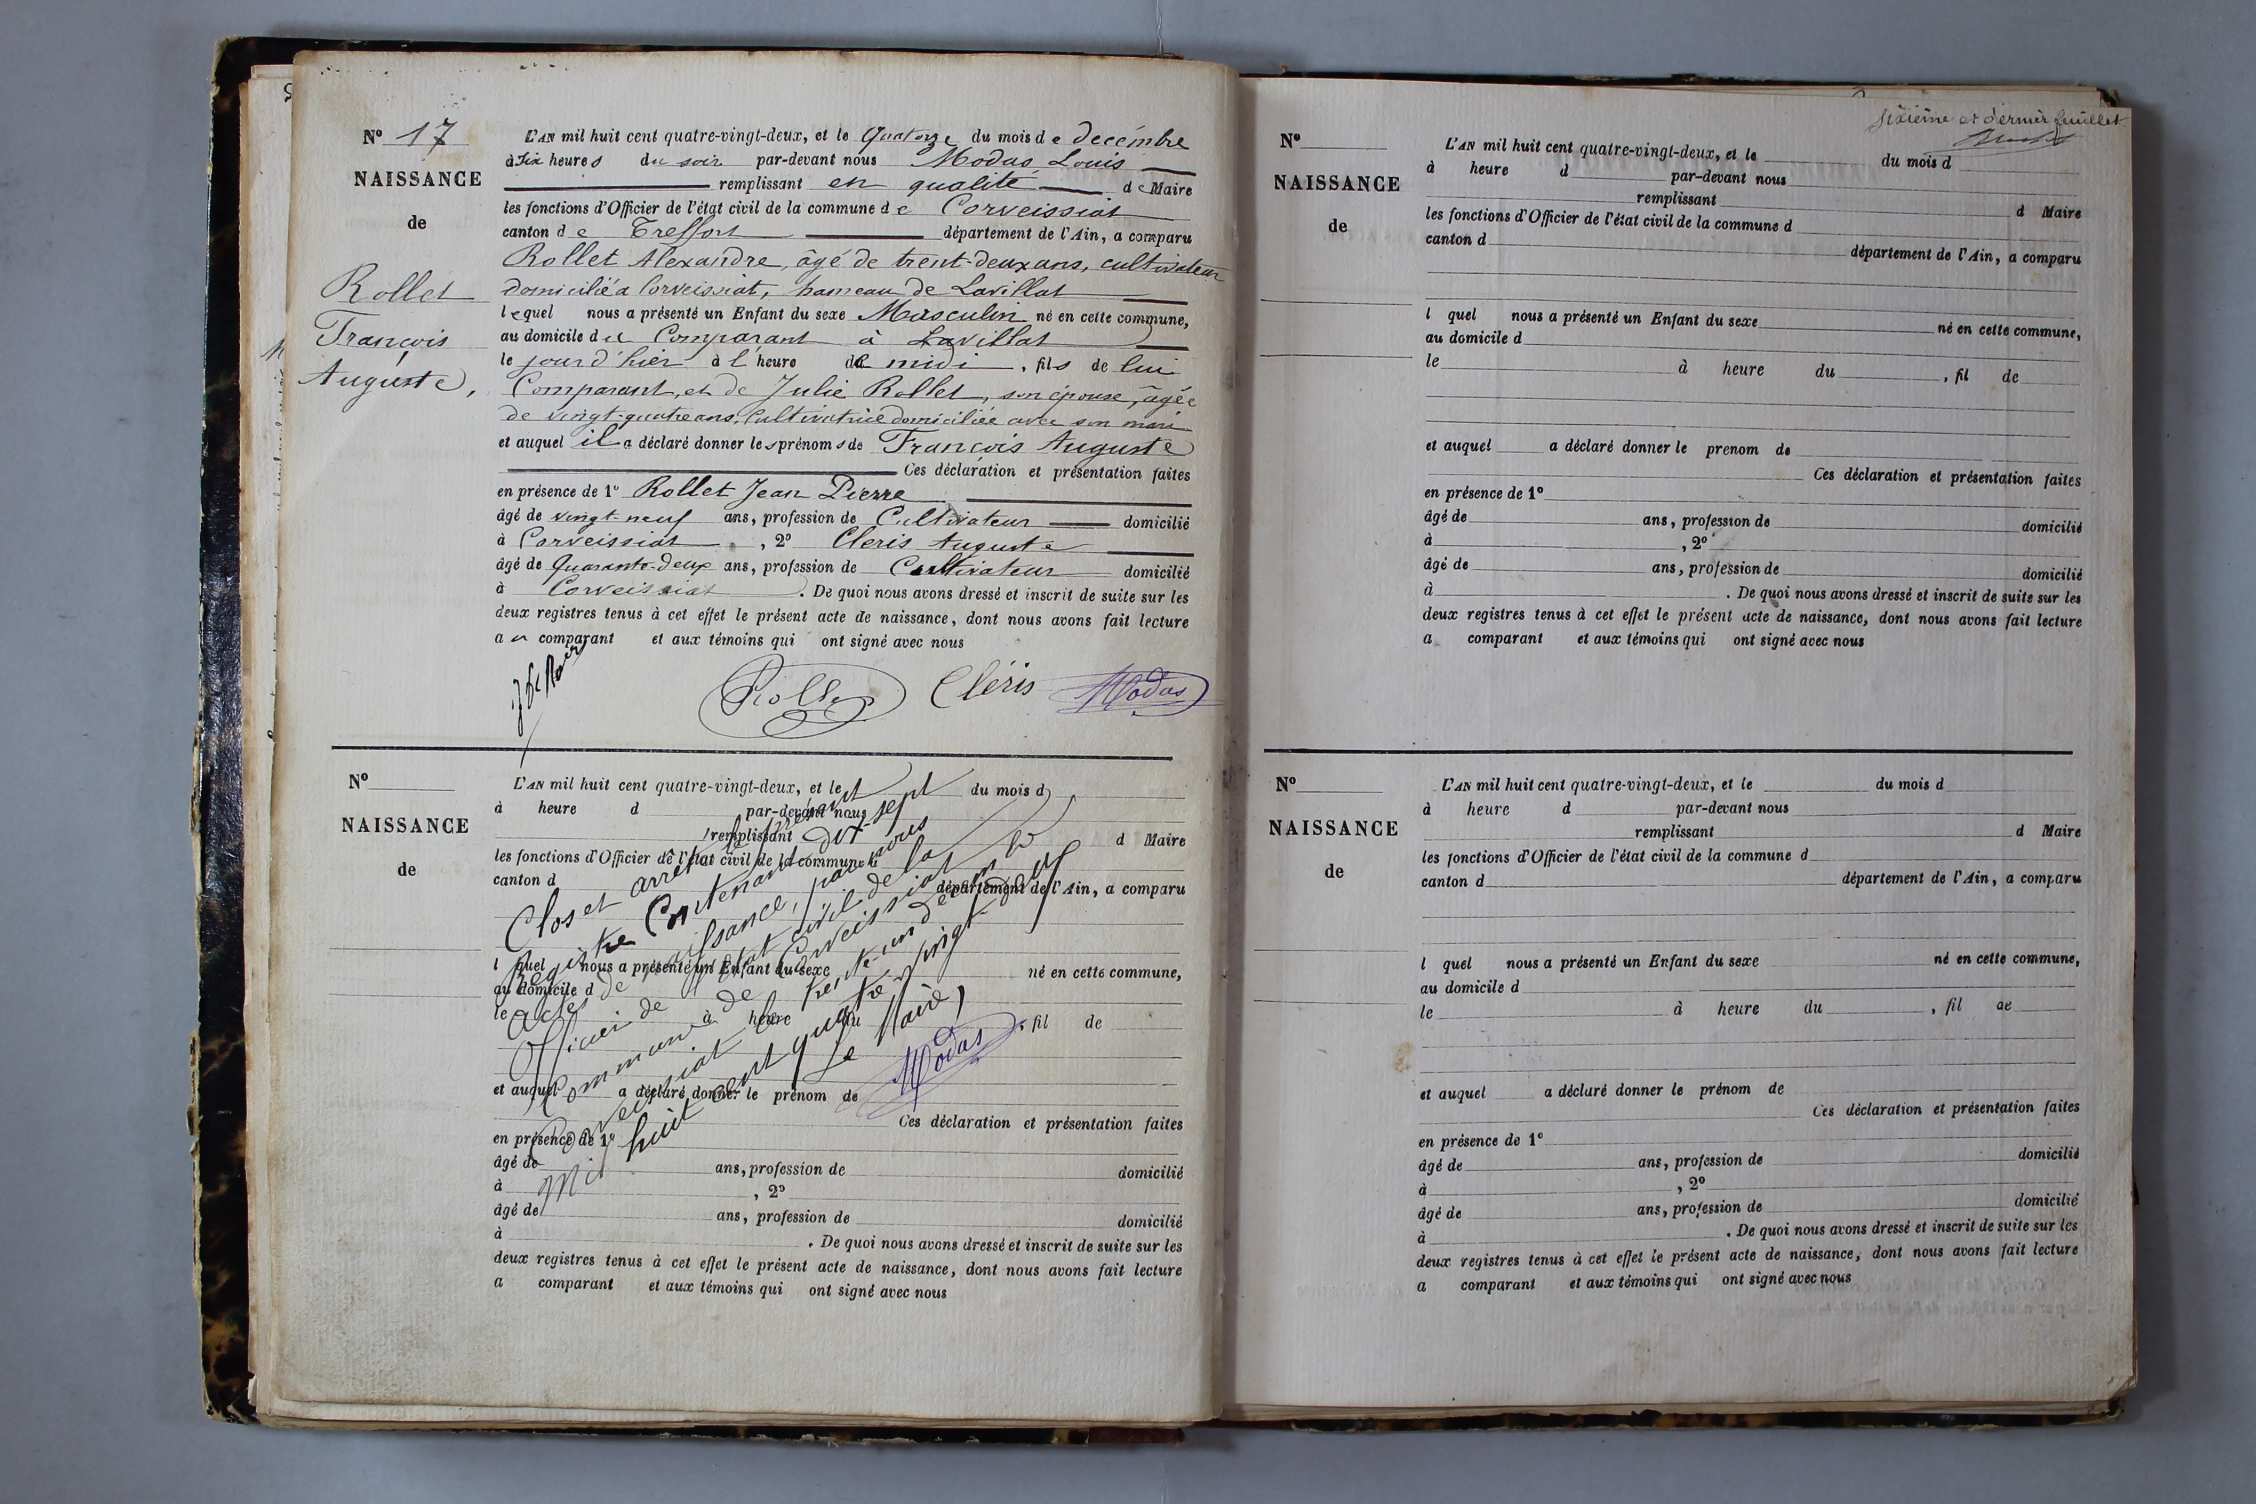 N° 17
NAISSANCE
de
Rollet
François
Auguste,
L'AN mil huit cent quatre-vingt-deux, et le Quatorze du mois de decémbre
à Six heures du soir par-devant nous Modas Louis
remplissant en qualité de Maire
les fonctions d'Officier de l'état civil de la commune de Corveissiat
canton de Treffort département de l'Ain, a comparu
Rollet Alexandre, âgé de trent-deux ans, cultivateur
domicilié à Corveissiat, hameau de Lavillat
lequel nous a présenté un Enfant du sexe Masculin né en cette commune,
au domicile du Comparant à Lavillat
le jour d'hier à l'heure de midi, fils de lui
Comparant, et de Julie Rollet, son épouse, âgée
de vingt-quatre ans, Cultivatrice domiciliée avec son mari
et auquel il a déclaré donner les prénoms de François Auguste
Ces déclaration et présentation faites
en présence de 1° Rollet Jean Pierre
âgé de vingt-neuf ans, profession de Cultivateur domicilié
à Corveissiat, 2° Cleris Auguste
âgé de Quarante-deux ans, profession de Cultivateur domicilié
à Corveissiat. De quoi nous avons dressé et inscrit de suite sur les
deux registres tenus à cet effet le présent acte de naissance, dont nous avons fait lecture
au comparant et aux témoins qui ont signé avec nous
Rollet Cléris Modas
N°
NAISSANCE
de
L'AN mil huit cent quatre-vingt-deux, et le du mois d
à heure d par-devant nous
remplissant d Maire
les fonctions d'Officier de l'état civil de la commune d
canton d département de l'Ain, a comparu
l quel nous a présenté un Enfant du sexe né en cette commune,
au domicile d
le à heure du , fil de
et auquel a déclaré donner le prénom de
Ces déclaration et présentation faites
en présence de 1°
âgé de ans, profession de domicilié
à , 2°
âgé de ans, profession de domicilié
à . De quoi nous avons dressé et inscrit de suite sur les
deux registres tenus à cet effet le présent acte de naissance, dont nous avons fait lecture
a comparant et aux témoins qui ont signé avec nous
Clos et arrêté le présent
Registre Contenant dix-sept
actes de naissance, par nous
Officier de l'état civil de la
Commune de Corveissiat
Corveissiat le trente-un décembre
Mil huit cent quatre-vingt-deux
Le Maire,
Modas
sixième et dernier feuillet
N°
NAISSANCE
de
L'AN mil huit cent quatre-vingt-deux, et le du mois d
à heure d par-devant nous
remplissant d Maire
les fonctions d'Officier de l'état civil de la commune d
canton d département de l'Ain, a comparu
l quel nous a présenté un Enfant du sexe né en cette commune,
au domicile d
le à heure du , fil de
et auquel a déclaré donner le prenom de
Ces déclaration et présentation faites
en présence de 1°
âgé de ans, profession de domicilié
à , 2°
âgé de ans, profession de domicilié
à . De quoi nous avons dressé et inscrit de suite sur les
deux registres tenus à cet effet le présent acte de naissance, dont nous avons fait lecture
a comparant et aux témoins qui ont signé avec nous
N°
NAISSANCE
de
L'AN mil huit cent quatre-vingt-deux, et le du mois d
à heure d par-devant nous
remplissant d Maire
les fonctions d'Officier de l'état civil de la commune d
canton d département de l'Ain, a comparu
l quel nous a présenté un Enfant du sexe né en cette commune,
au domicile d
le à heure du , fil de
et auquel a déclaré donner le prénom de
Ces déclaration et présentation faites
en présence de 1°
âgé de ans, profession de domicilié
à , 2°
âgé de ans, profession de domicilié
à . De quoi nous avons dressé et inscrit de suite sur les
deux registres tenus à cet effet le présent acte de naissance, dont nous avons fait lecture
a comparant et aux témoins qui ont signé avec nous